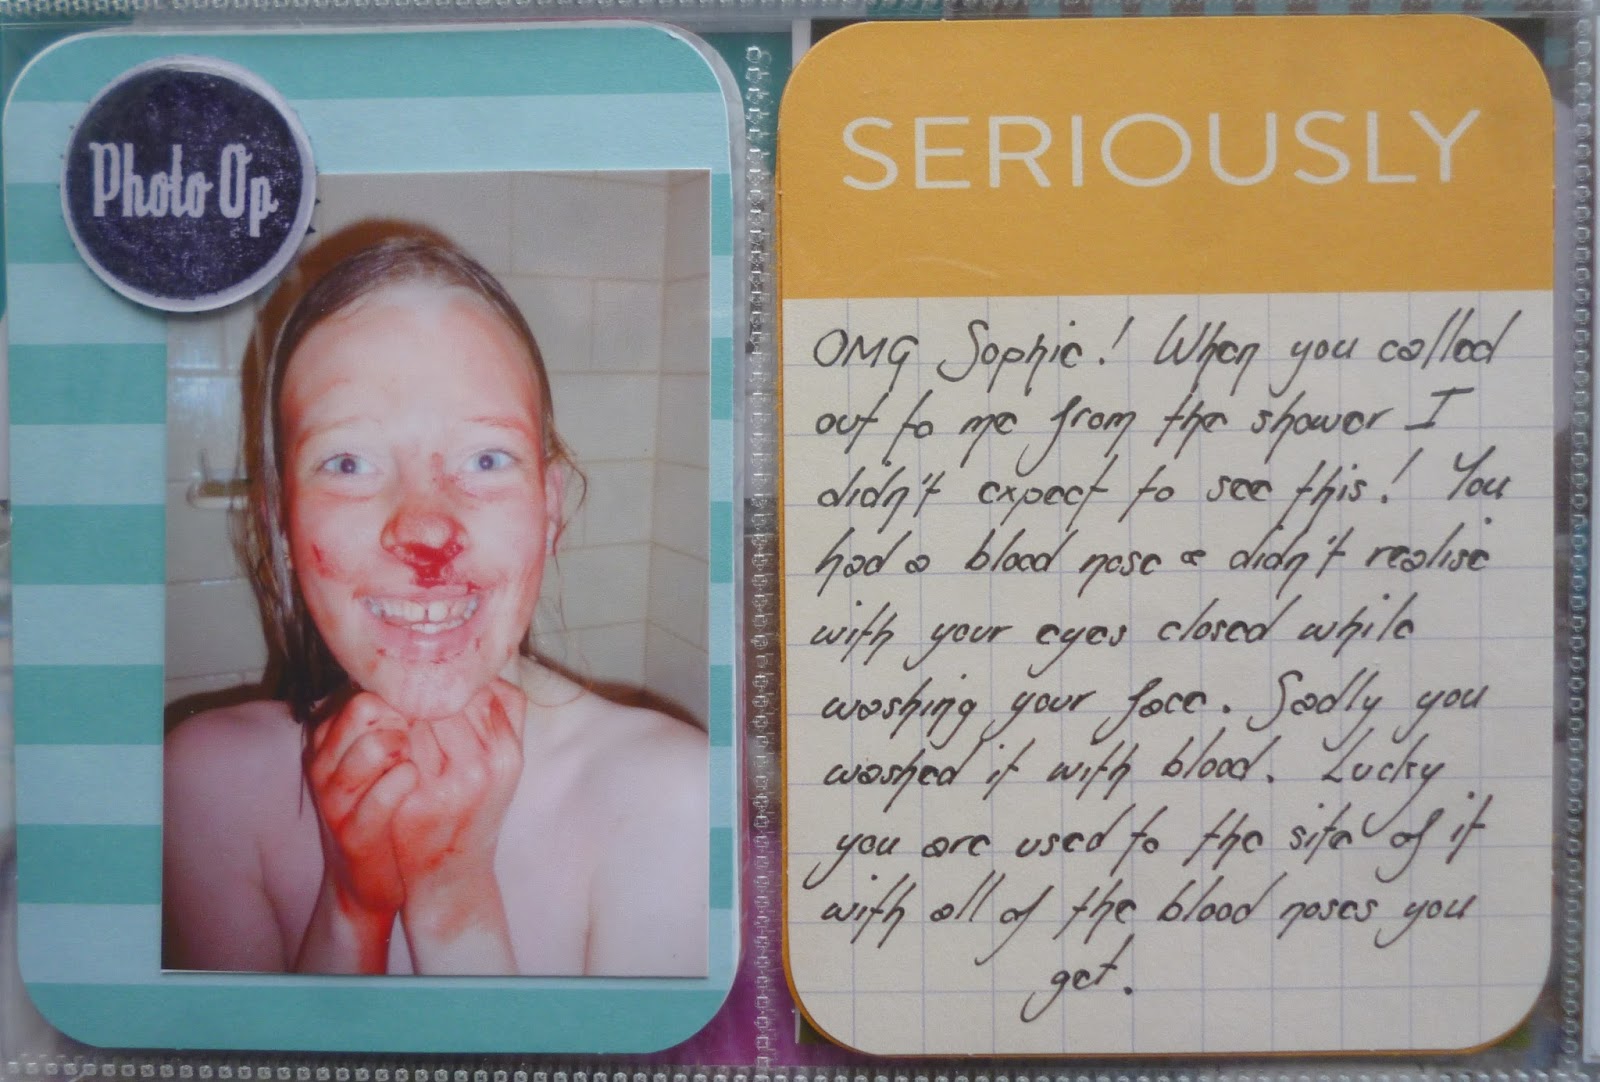 Photo Op
SERIOUSLY
OMG Sophie! When you called
out to me from the shower I
didn't expect to see this! You
had a blood nose & didn't realise
with your eyes closed while
washing your face. Sadly you
washed it with blood. Lucky
you are used to the site of it
with all of the blood noses you
get.